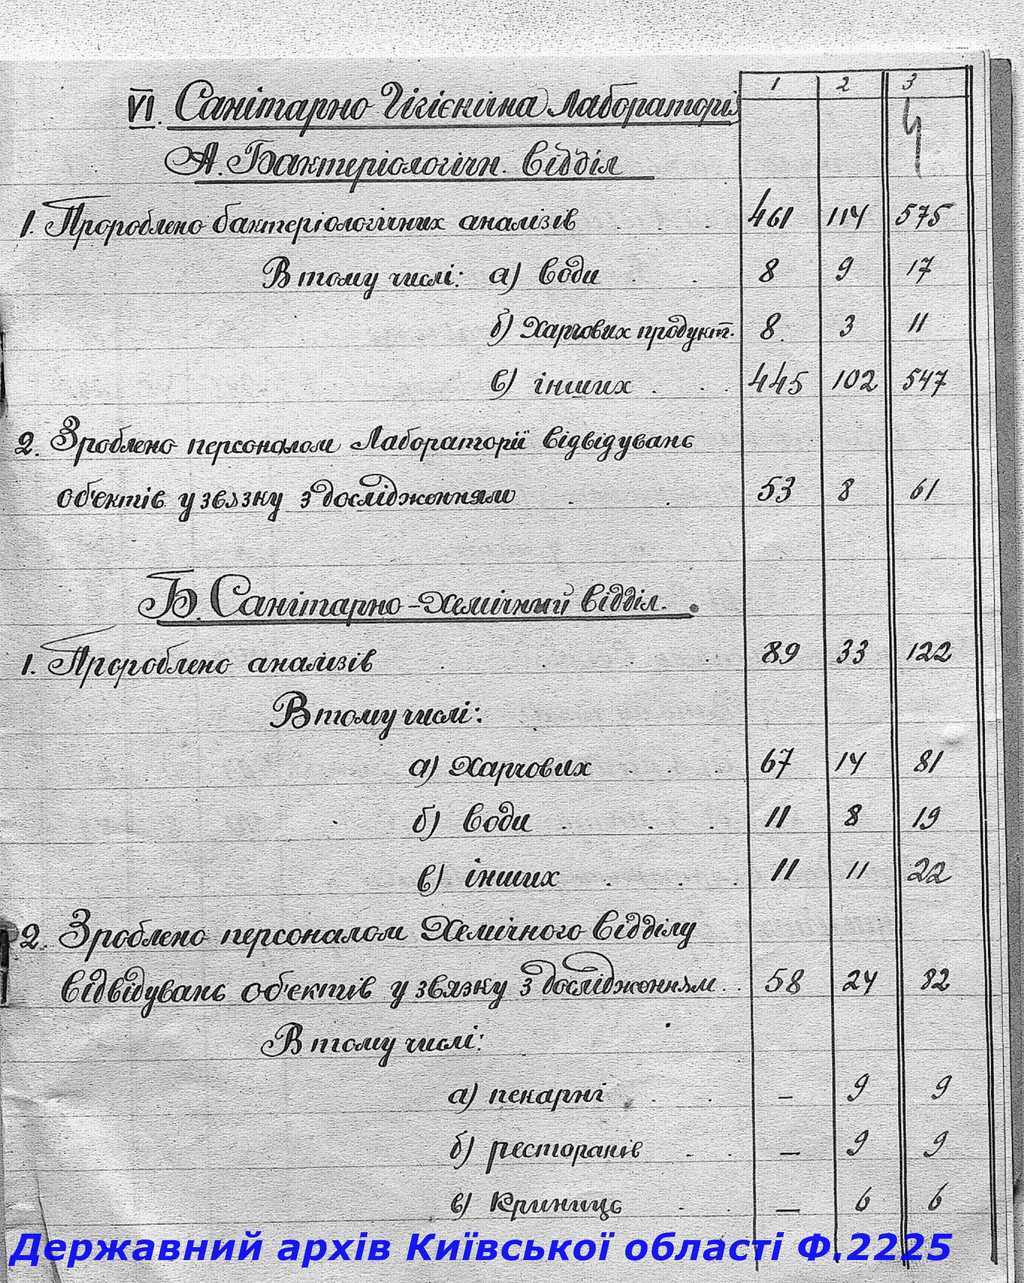 1 2 3
VI. Санітарно Гігієнічна Лабораторія
А. Бактеріологічн. Відділ
1. Пророблено бактеріологічних аналізів . . . . 461 114 575
В тому числі: а) Води . . 8 9 17
б) Харчових продукт. 8. 3 11
в) інших . . . 445 102 547
2. Зроблено персоналом Лабораторії відвідувань
об'єктів у звязку з дослідженням . . 53 8 61
Б. Санітарно-Хемічний відділ.
1. Пророблено аналізів . . . . 89 33 122
В тому числі:
а) Харчових . . . 67 14 81
б) Води . . . 11 8 19
в) інших . . . 11 11 22
2. Зроблено персоналом Хемічного Відділу
відвідувань об'єктів у звязку з дослідженням . . 58 24 82
В тому числі:
а) пекарні . . – 9 9
б) ресторанів . . – 9 9
в) Криниць . . – 6 6
Державний архів Київської області Ф.2225